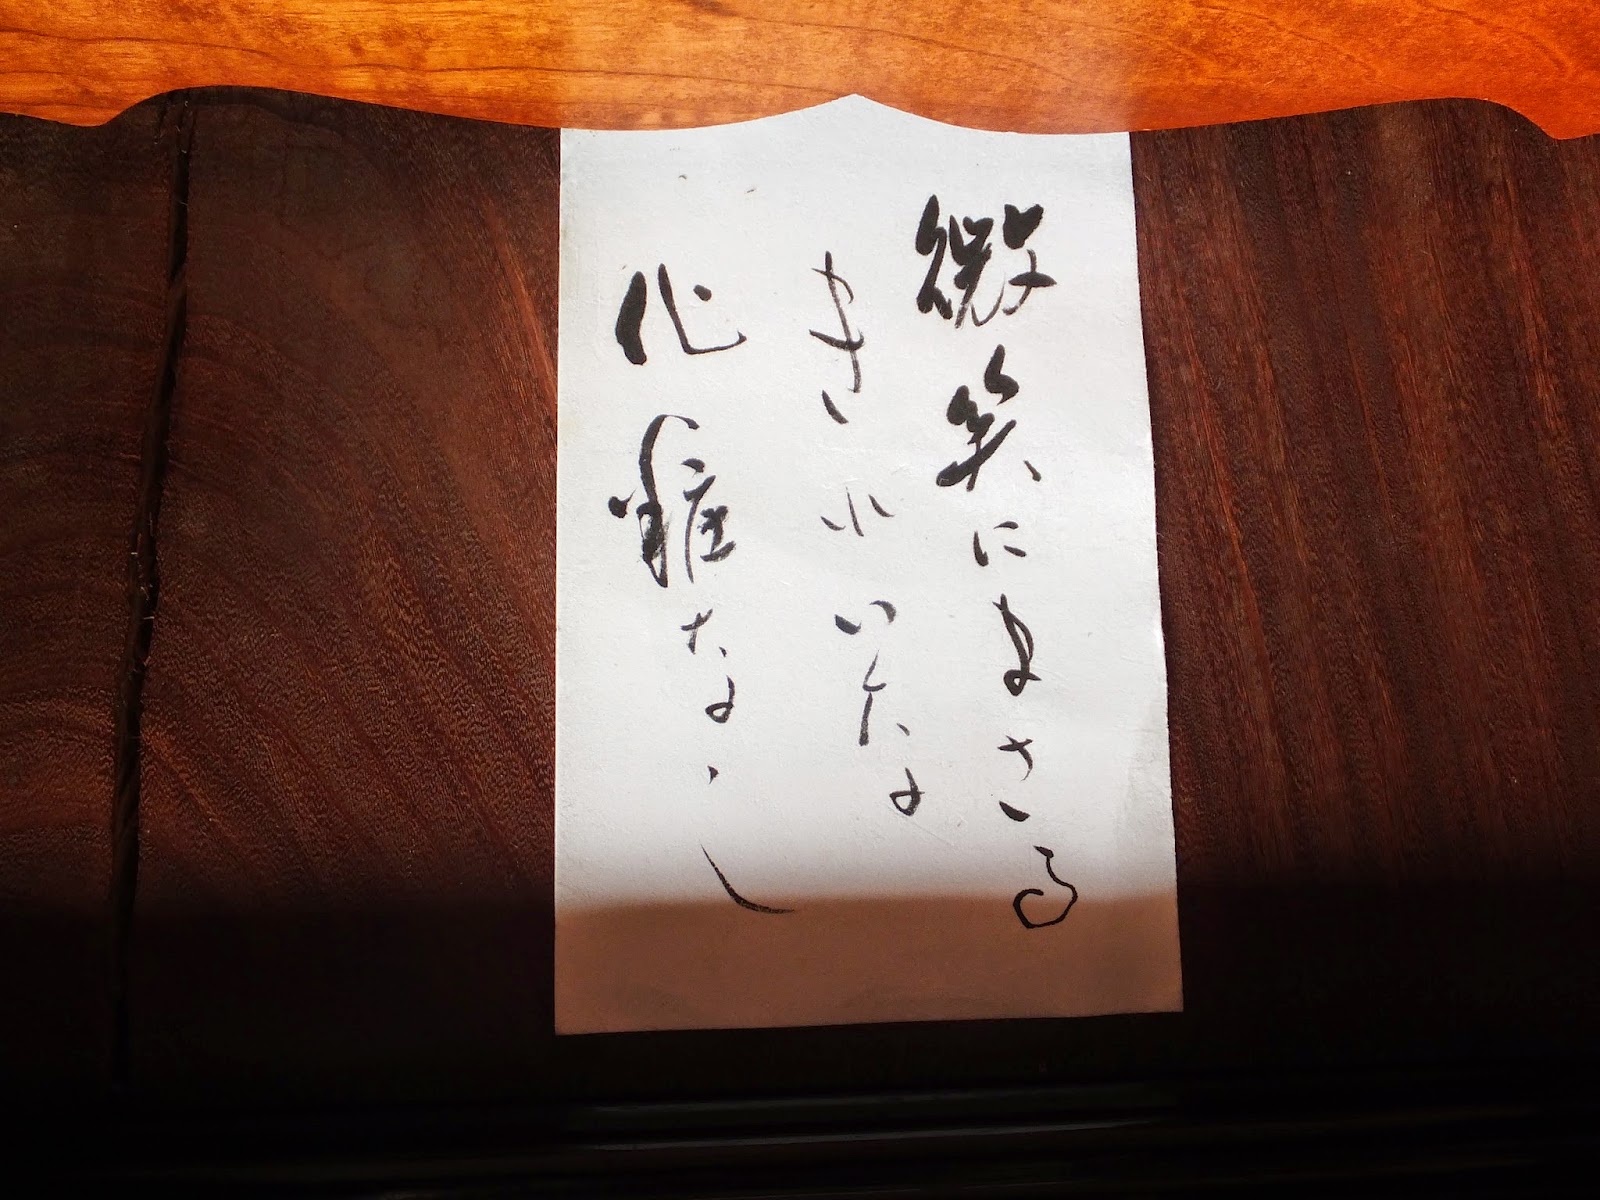 微笑にまさる
きれいな
化粧なし